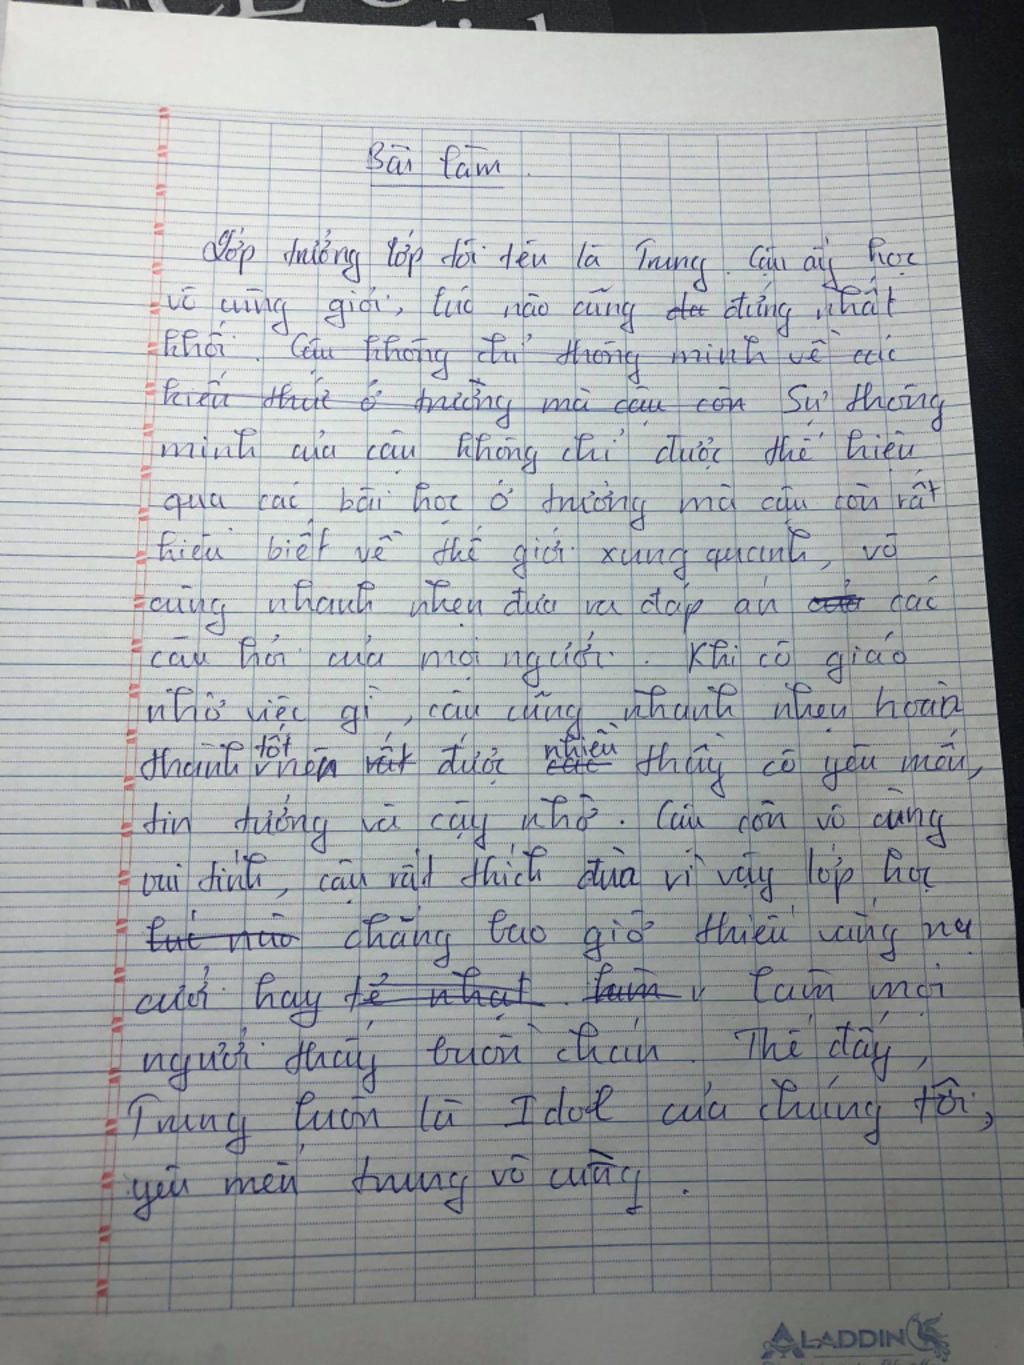 Bài làm
Lớp trưởng lớp tôi tên là Trung. Cậu ấy học
vô cùng giỏi, lúc nào cũng đứng nhất
khối. Cậu không chỉ thông minh về các
kiến thức ở trường mà cậu còn Sự thông
minh của cậu không chỉ được thể hiện
qua các bài học ở trường mà cậu còn rất
hiểu biết về thế giới xung quanh, vô
cùng nhanh nhẹn đưa ra đáp án các
câu hỏi của mọi người. Khi cô giáo
nhờ việc gì, cậu cũng nhanh nhẹn hoàn
thành tốt nên rất được nhiều các thầy cô yêu mến,
tin tưởng và cậy nhờ. Cậu còn vô cùng
vui tính, cậu rất thích đùa vì vậy lớp học
lúc nào chẳng bao giờ thiếu vắng nụ
cười hay tẻ nhạt làm làm mọi
người thấy buồn chán. Thế đấy,
Trung luôn là Idol của chúng tôi,
yêu mến trung vô cùng.
ALADDIN